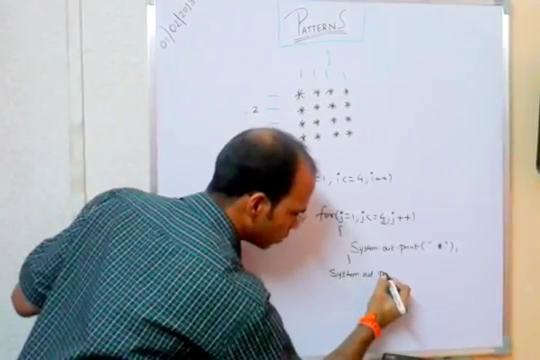 PATTERNS
* * * *
2 * * * *
* * * *
* * * *
=1, i<=4, i++)
for(j=1, j<=4, j++)
{
System out print(" * "),
}
System out